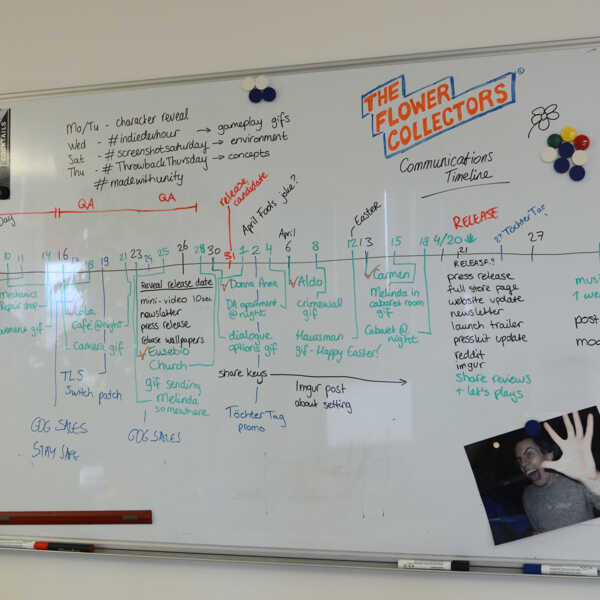 THE
FLOWER
COLLECTORS
Communications
Timeline
Mo/Tu - character reveal
Wed - #indiedevhour → gameplay gifs
Sat - #screenshotsaturday → environment
Thu - #ThrowbackThursday → concepts
#madewithunity
Day
QA
QA
release
candidate
April Fools joke?
Easter
RELEASE
TöchterTag
10 11 16 18 19 23 25 26 30 31 1 2 4 6 8 12 13 15 18 4/20 21 27
April
Mechanics
Repair shop
gif
Lola
Café @night
Camera gif
TLS
Switch patch
GOG SALES
STAY SAFE
Reveal release date
mini-video 10sec
newsletter
press release
release wallpapers
Eusebio
Church
gif sending
Melinda
somewhere
GOG SALES
Donna Anna
DA apartment
@night
dialogue
options gif
share keys
TöchterTag
promo
Aldo
crimewall
gif
Hausman
gif - Happy Easter!
Imgur post
about setting
Carmen
Melinda in
cabaret room
gif
Cabaret @
night
RELEASE!
press release
full store page
website update
newsletter
launch trailer
presskit update
reddit
imgur
share reviews
+ let's plays
music
1 we
post
mo